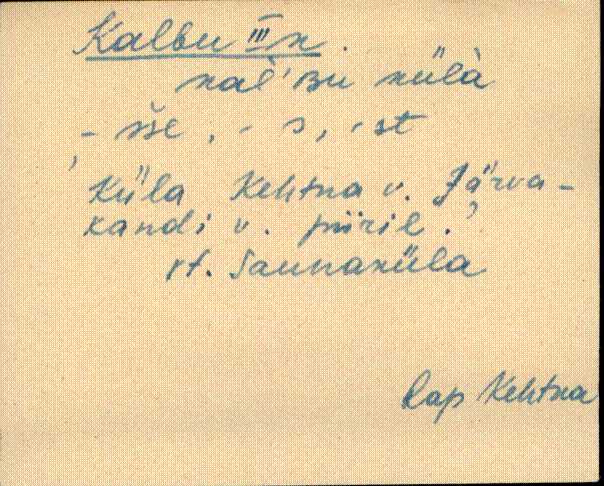 Kalbu III k.
kal̀'ʙu külà
- sse, - s, - st
'Küla Kehtna v. Järva-
kandi v. piiril.'
vt. Saunaküla
Rap Kehtna